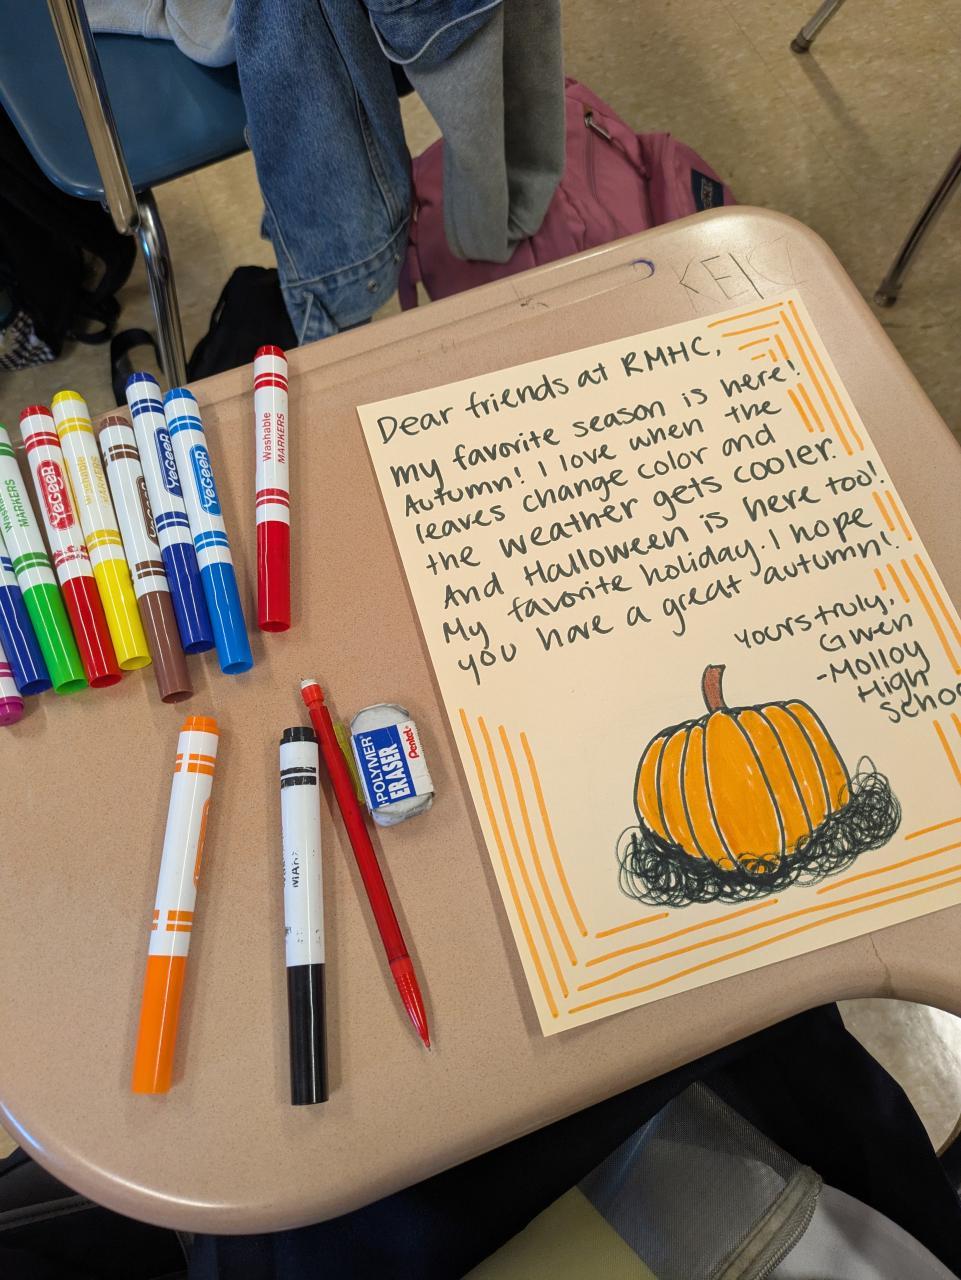 KEIC
Dear friends at RMHC,
my favorite season is here!
Autumn! I love when the
leaves change color and
the weather gets cooler.
And Halloween is here too!
My favorite holiday. I hope
you have a great autumn!
yours truly,
Gwen
-Molloy
High
School
Washable
MARKERS
Washable
MARKERS
YeGeeR
Washable
MARKERS
YeGeeR
YeGeeR
POLYMER
ERASER
Pentel
MAR